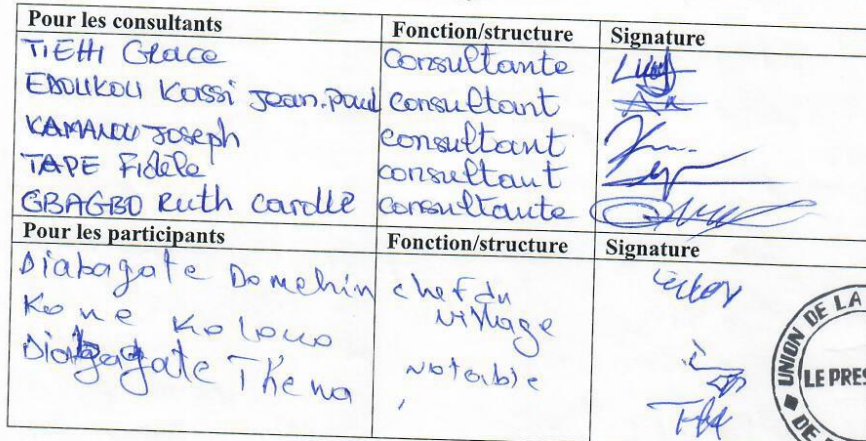 Pour les consultants Fonction/structure Signature
TIEHI Grace Consultante
EDOUKOU Kassi Jean-Paul consultant
KAMANOU Joseph consultant
TAPE Fidèle consultant
GBAGBO Ruth Carolle consultante
Pour les participants Fonction/structure Signature
Diabagate Domehin chef du village
Kone Kolouo
Diabagate Thena Notable
UNION DE LA
LE PRES